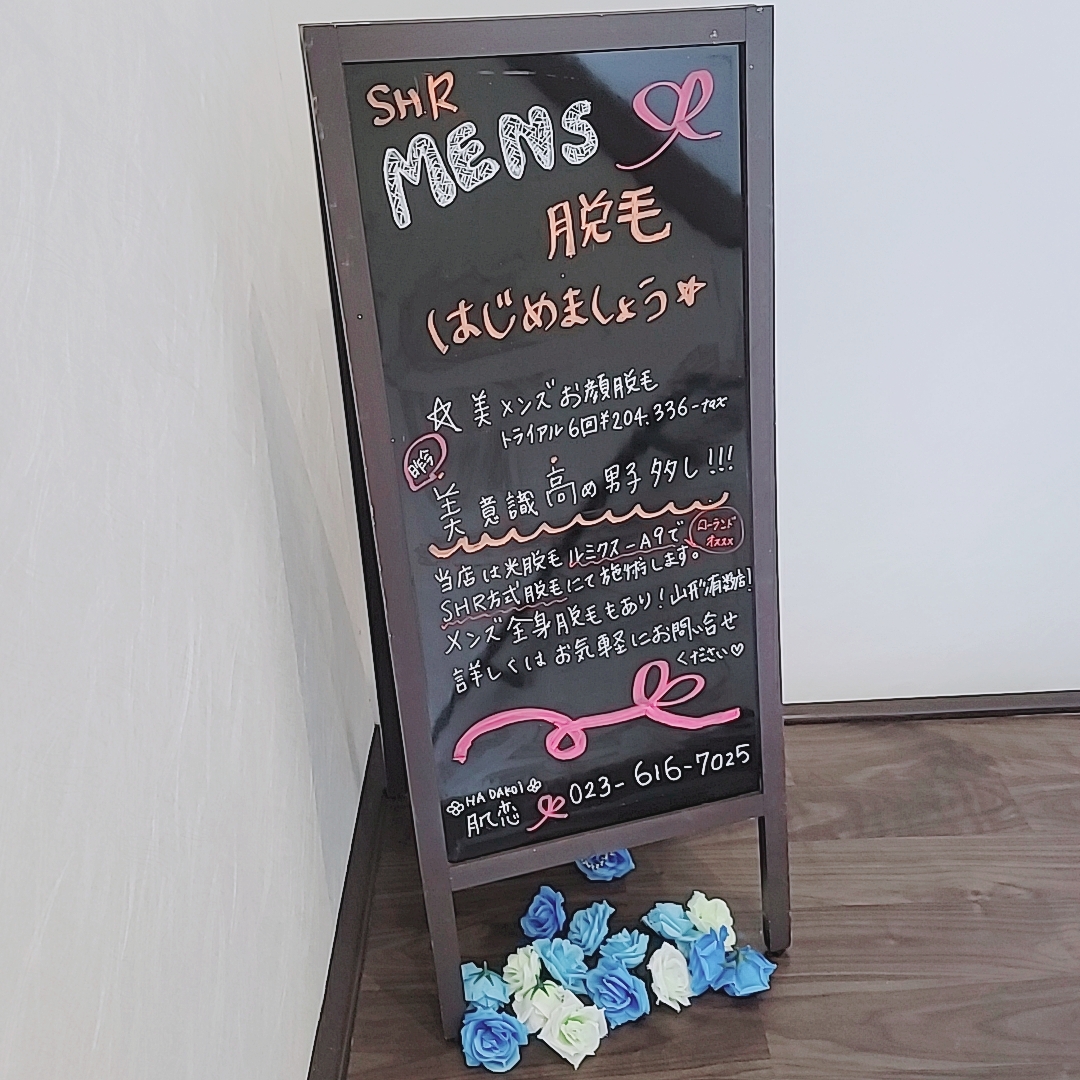 SHR
MENS
脱毛
はじめましょう☆
☆ 美 メンズお顔脱毛
トライアル6回¥204.336-tax
昨今
美意識高め男子タタし!!!
当店は光脱毛ルミクス-A9で
ローランド
オススメ
SHR方式脱毛にて施術します。
メンズ全身脱毛もあり!山形有数店!
詳しくはお気軽にお問い合せ
ください♡
HADAKOI
肌恋
023-616-7025